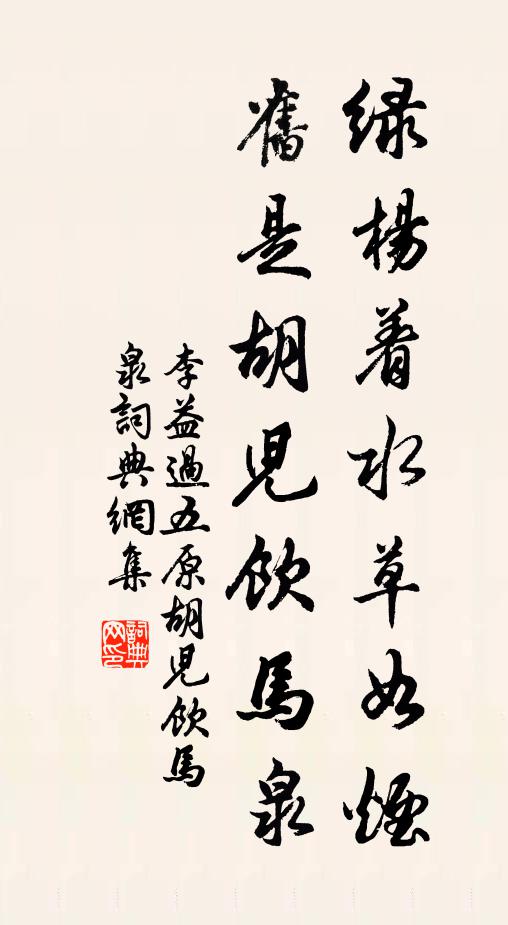 绿楊着水草如煙
舊是胡児飲馬泉
李益過五原胡児飲馬
泉詞典網集
詞典
网印